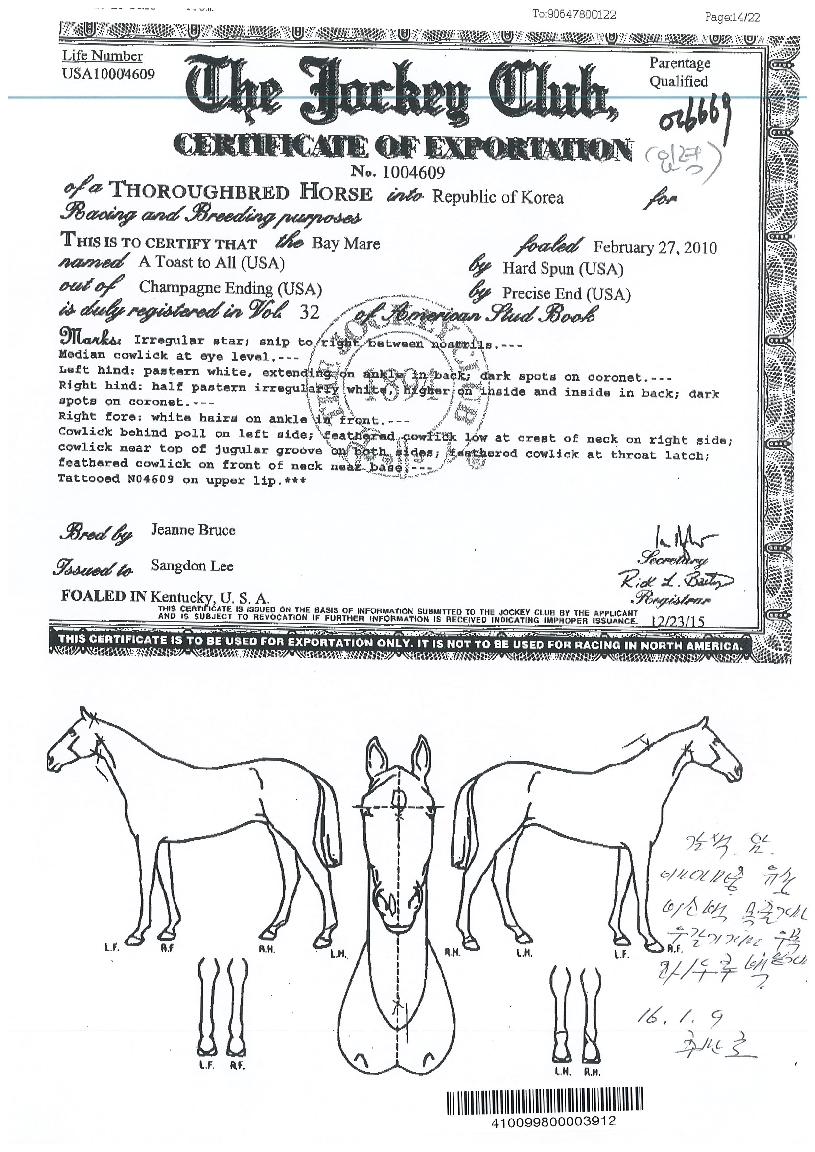 To:90647800122 Page:14/22
Life Number
USA10004609
Parentage
Qualified
The Jockey Club,
026669
CERTIFICATE OF EXPORTATION
No. 1004609
of a THOROUGHBRED HORSE into Republic of Korea for
Racing and Breeding purposes
THIS IS TO CERTIFY THAT the Bay Mare foaled February 27, 2010
named A Toast to All (USA) by Hard Spun (USA)
out of Champagne Ending (USA) by Precise End (USA)
is duly registered in Vol. 32 of American Stud Book
Marks: Irregular star; snip to right between nostrils.---
Median cowlick at eye level.---
Left hind: pastern white, extending on ankle in back; dark spots on coronet.---
Right hind: half pastern irregularly white, higher on inside and inside in back; dark
spots on coronet.---
Right fore: white hairs on ankle in front.---
Cowlick behind poll on left side; feathered cowlick low at crest of neck on right side;
cowlick near top of jugular groove on both sides; feathered cowlick at throat latch;
feathered cowlick on front of neck near base.---
Tattooed N04609 on upper lip.***
THE JOCKEY CLUB
1894
Bred by Jeanne Bruce
Issued to Sangdon Lee
Secretary
Registrar
FOALED IN Kentucky, U. S. A.
THIS CERTIFICATE IS ISSUED ON THE BASIS OF INFORMATION SUBMITTED TO THE JOCKEY CLUB BY THE APPLICANT
AND IS SUBJECT TO REVOCATION IF FURTHER INFORMATION IS RECEIVED INDICATING IMPROPER ISSUANCE. 12/23/15
THIS CERTIFICATE IS TO BE USED FOR EXPORTATION ONLY. IT IS NOT TO BE USED FOR RACING IN NORTH AMERICA.
L.F. R.F R.H. L.H. R.H. L.H. L.F. R.F.
16. 1. 9
L.F. R.F. L.H. R.H.
410099800003912